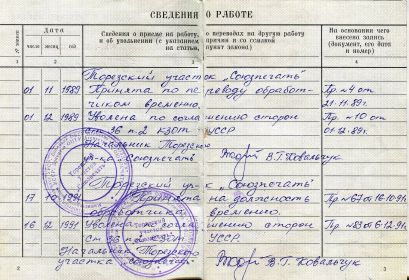 СВЕДЕНИЯ О РАБОТЕ
№ записи
Дата
Сведения о приеме на работу, о переводах на другую работу
и об увольнении (с указанием причин и со ссылкой
на статью, пункт закона)
На основании чего
внесена запись
(документ, его дата
и номер)
число месяц год
1 2 3 4
Торезский участок „Союзпечать"
01 11 1989 Принята по переводу обработ- Пр №4 от
чиком временно. 21.11.89г.
01 12 1989 Уволена по соглашению сторон Пр №10 от
ст 36 п.2 КЗОТ УССР 01.12.89г.
Начальник Торезского
уч-ка Союзпечать В.Т. Ковальчук
Торезский уч-к „Союзпечать"
17 10 1991 Принята на должность Пр №67 от 16.10.91г.
обработчика временно.
16 12 1991 Уволена по соглашению сторон Пр №83 от 6.12.91г.
ст 36 п.2 КЗОТ УССР.
Начальник Торезского
участка Союзпечать В.Т. Ковальчук
2 3